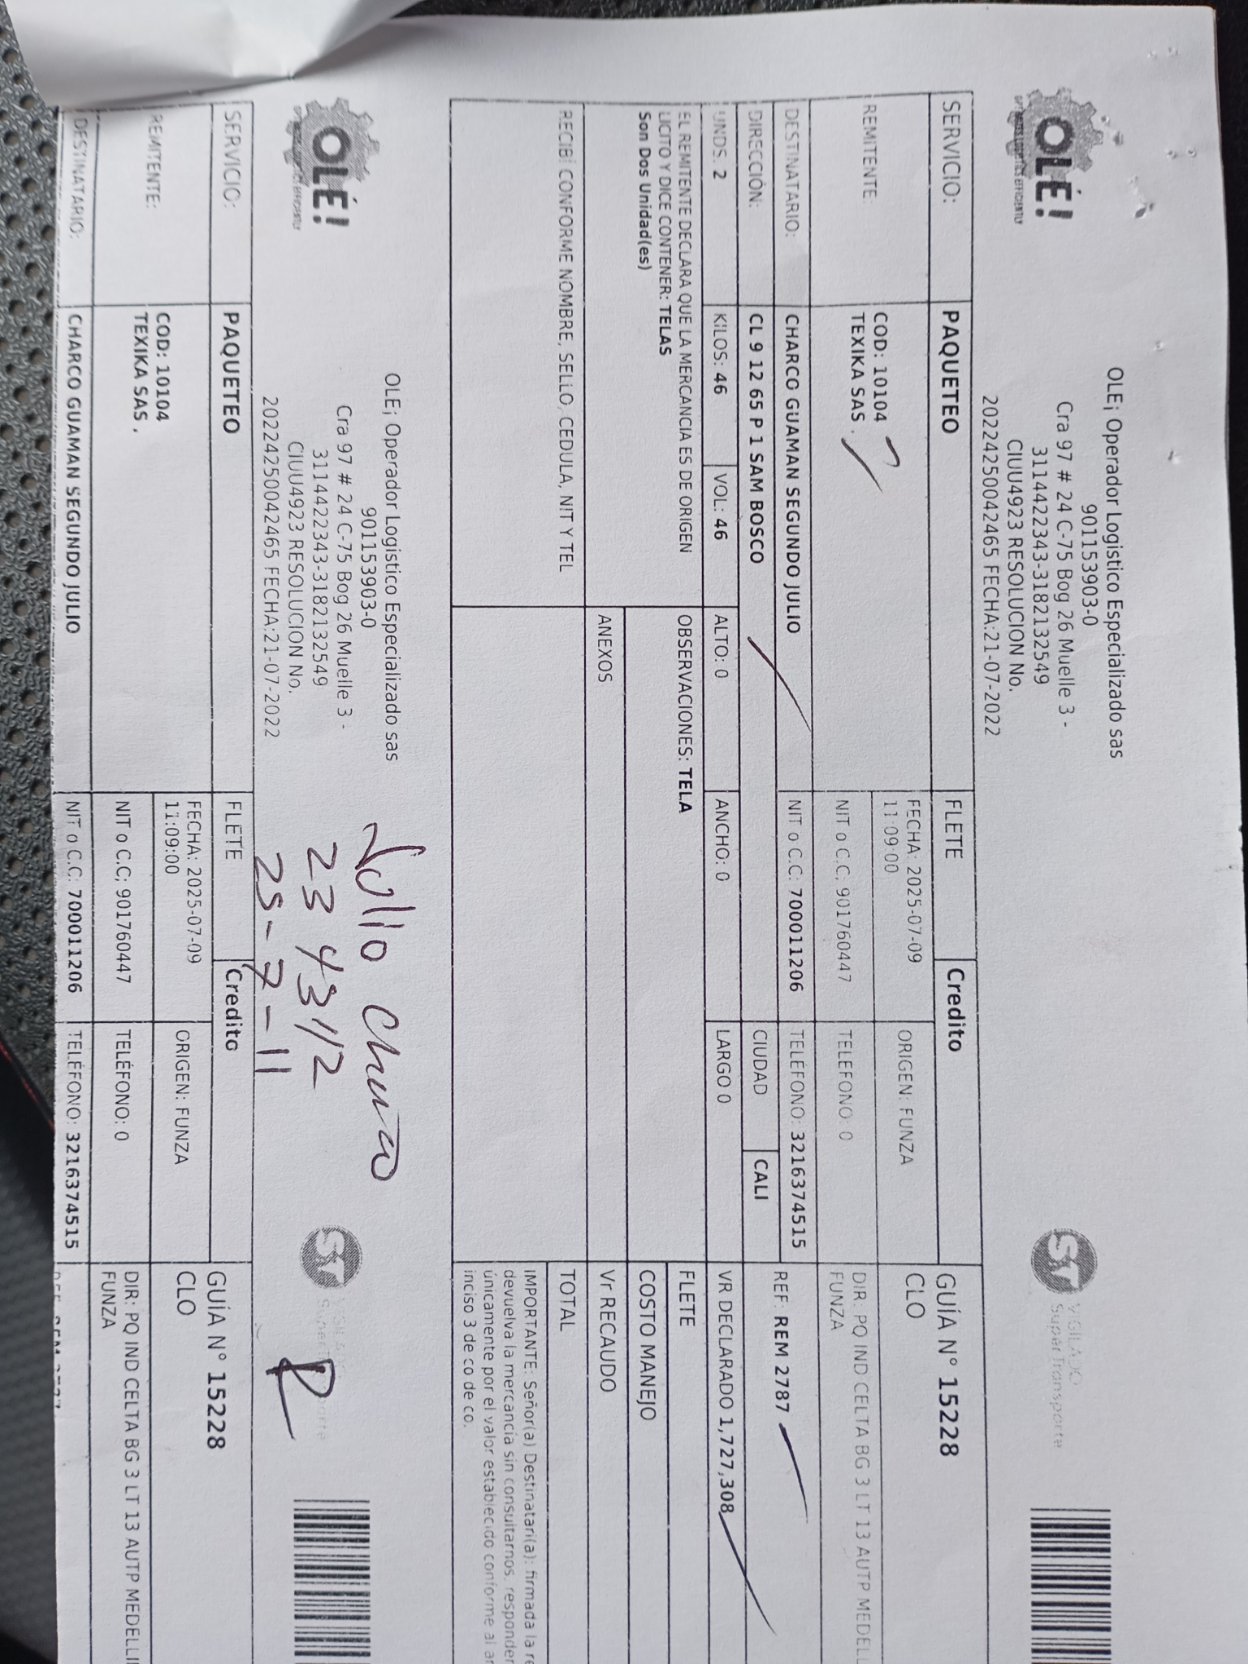 OLÉ!
OLE¡ Operador Logistico Especializado sas
901153903-0
Cra 97 # 24 C-75 Bog 26 Muelle 3 -
3114422343-3182132549
CIUU4923 RESOLUCION No.
20224250042465 FECHA:21-07-2022
VIGILADO
SuperTransporte
SERVICIO: PAQUETEO FLETE Credito GUÍA N° 15228
CLO
REMITENTE: COD: 10104
TEXIKA SAS .
FECHA: 2025-07-09
11:09:00
ORIGEN: FUNZA
NIT o C.C: 901760447 TELÉFONO: 0
DIR: PQ IND CELTA BG 3 LT 13 AUTP MEDELL
FUNZA
DESTINATARIO: CHARCO GUAMAN SEGUNDO JULIO NIT o C.C: 700011206 TELÉFONO: 3216374515 REF: REM 2787
DIRECCIÓN: CL 9 12 65 P 1 SAM BOSCO CIUDAD CALI
UNDS: 2 KILOS: 46 VOL: 46 ALTO: 0 ANCHO: 0 LARGO 0 VR DECLARADO 1,727,308
EL REMITENTE DECLARA QUE LA MERCANCIA ES DE ORIGEN
LICITO Y DICE CONTENER: TELAS
Son Dos Unidad(es)
OBSERVACIONES: TELA
FLETE
COSTO MANEJO
ANEXOS
Vr RECAUDO
RECIBÍ CONFORME NOMBRE, SELLO, CEDULA, NIT Y TEL
TOTAL
IMPORTANTE: Señor(a) Destinatari(a): firmada la
devuelva la mercancia sin consultarnos,
únicamente por el valor establecido conforme al
inciso 3 de co de co.
OLÉ!
OLE¡ Operador Logistico Especializado sas
901153903-0
Cra 97 # 24 C-75 Bog 26 Muelle 3 -
3114422343-3182132549
CIUU4923 RESOLUCION No.
20224250042465 FECHA:21-07-2022
Julio Charco
234312
25-7-11
SERVICIO: PAQUETEO FLETE Credito GUÍA N° 15228
CLO
REMITENTE: COD: 10104
TEXIKA SAS .
FECHA: 2025-07-09
11:09:00
ORIGEN: FUNZA
NIT o C.C: 901760447 TELÉFONO: 0
DIR: PQ IND CELTA BG 3 LT 13 AUTP MEDELLI
FUNZA
DESTINATARIO: CHARCO GUAMAN SEGUNDO JULIO NIT o C.C: 700011206 TELÉFONO: 3216374515